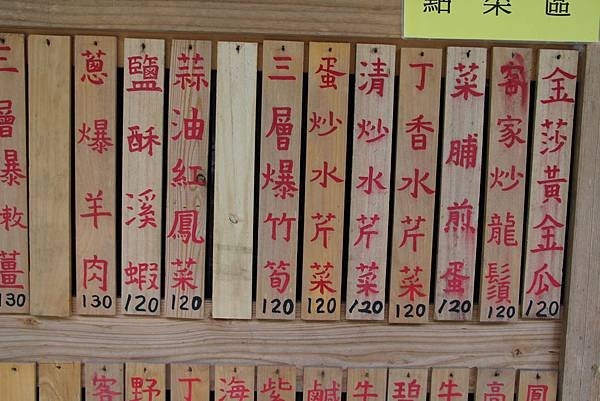 點菜區
金莎黃金瓜 120
客家炒龍鬚 120
菜脯煎蛋 120
丁香水芹菜 120
清炒水芹菜 120
蛋炒水芹菜 120
三層爆竹筍 120
蒜油紅鳳菜 120
鹽酥溪蝦 120
蔥爆羊肉 130
三層暴敕薑 130
鳳
高
牛
碧
牛
鹹
紫
海
丁
野
客